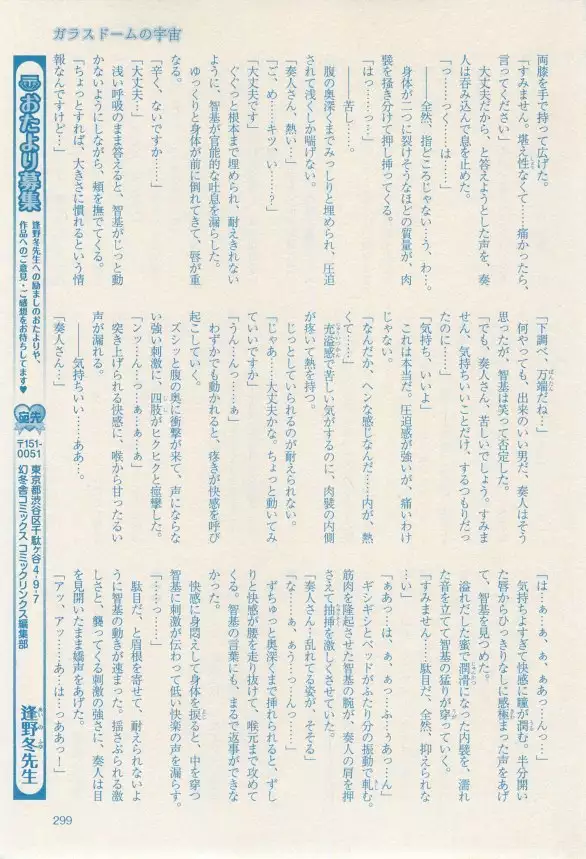 ガラスドームの宇宙
両膝を手で持って広げた。
「すみません。堪え性なくて……痛かったら、
言ってください」
大丈夫だから、と答えようとした声を、奏
人は呑み込んで息を止めた。
「っ……っく……は……」
――全然、指どころじゃない…う、わ…。
身体が二つに裂けそうなほどの質量が、肉
襞を掻き分けて押し挿ってくる。
「はっ……っ…」
――苦し……。
腹の奥深くまでみっしりと埋められ、圧迫
されて浅くしか喘げない。
「奏人さん、熱い…」
「ご、め……キツ、い……?」
「大丈夫です」
ぐぐっと根本まで埋められ、耐えきれない
ように、智基が官能的な吐息を漏らした。
ゆっくりと身体が前に倒れてきて、唇が重
なる。
「辛く、ないですか……」
「大丈夫…」
浅い呼吸のまま答えると、智基がじっと動
かないようにしながら、頬を撫でてくる。
「ちょっとすれば、大きさに慣れるという情
報なんですけど…」
「下調べ、万端だね…」
何やっても、出来のいい男だ、奏人はそう
思ったが、智基は笑って否定した。
「でも、奏人さん、苦しいでしょう。すみま
せん、気持ちいいことだけ、するつもりだっ
たのに……」
「気持ち、いいよ」
これは本当だ。圧迫感が強いが、痛いわけ
じゃない。
「なんだか、ヘンな感じなんだ……内が、熱
くて……」
充溢感で苦しい気がするのに、肉襞の内側
が疼いて熱を持つ。
じっとしていられるのが耐えられない。
「じゃあ…大丈夫かな。ちょっと動いてみ
ていいですか」
「うん……んっ……ぁ」
わずかでも動かれると、疼きが快感を呼び
起こしていく。
ズシッと腹の奥に衝撃が来て、声にならな
い強い刺激に、四肢がヒクヒクと痙攣した。
「ンッ…ん…っ…ぁ…ぁ…ぁ」
突き上げられる快感に、喉から甘ったるい
声が漏れる。
――気持ちいい……ああ…。
「奏人さん…」
「は…ぁ…ぁ、ぁ、ああっ…んっ…」
気持ちよすぎて快感に瞳が潤む。半分開い
た唇からひっきりなしに感極まった声をあげ
て、智基を見つめた。
溢れだした蜜で潤滑になった内襞を、濡れ
た音を立てて智基の猛りが穿っていく。
「すみません……駄目だ、全然、抑えられな
…い」
「ああっ…は、ぁ、ぁっ…ふ…うあっ…ん」
ギシギシとベッドがふたり分の振動で軋む。
筋肉を隆起させた智基の腕が、奏人の肩を押
さえて抽挿を激しくさせていた。
「奏人さん…乱れてる姿が、そそる」
「な……ぁ、ぁぅ…っ…んっ……」
ずちゅっと奥深くまで挿れられると、ずし
りと快感が腰を走り抜けて、喉元まで攻めて
くる。智基の言葉にも、まるで返事ができな
かった。
快感に身悶えして身体を捩ると、中を穿つ
智基に刺激が伝わって低い快楽の声を漏らす。
「……っ…」
駄目だ、と眉根を寄せて、耐えられないよ
うに智基の動きが速まった。揺さぶられる激
しさと、襲ってくる刺激の強さに、奏人は目
を見開いたまま嬌声をあげた。
「アッ、アッ……あ…は…っああっ!」
おたより募集
逢野冬先生への励ましのおたよりや、
作品へのご意見・ご感想をお待ちしてます♥
宛先
〒151-0051
東京都渋谷区千駄ヶ谷4-9-7
幻冬舎コミックス コミックリンクス編集部
逢野冬先生
299